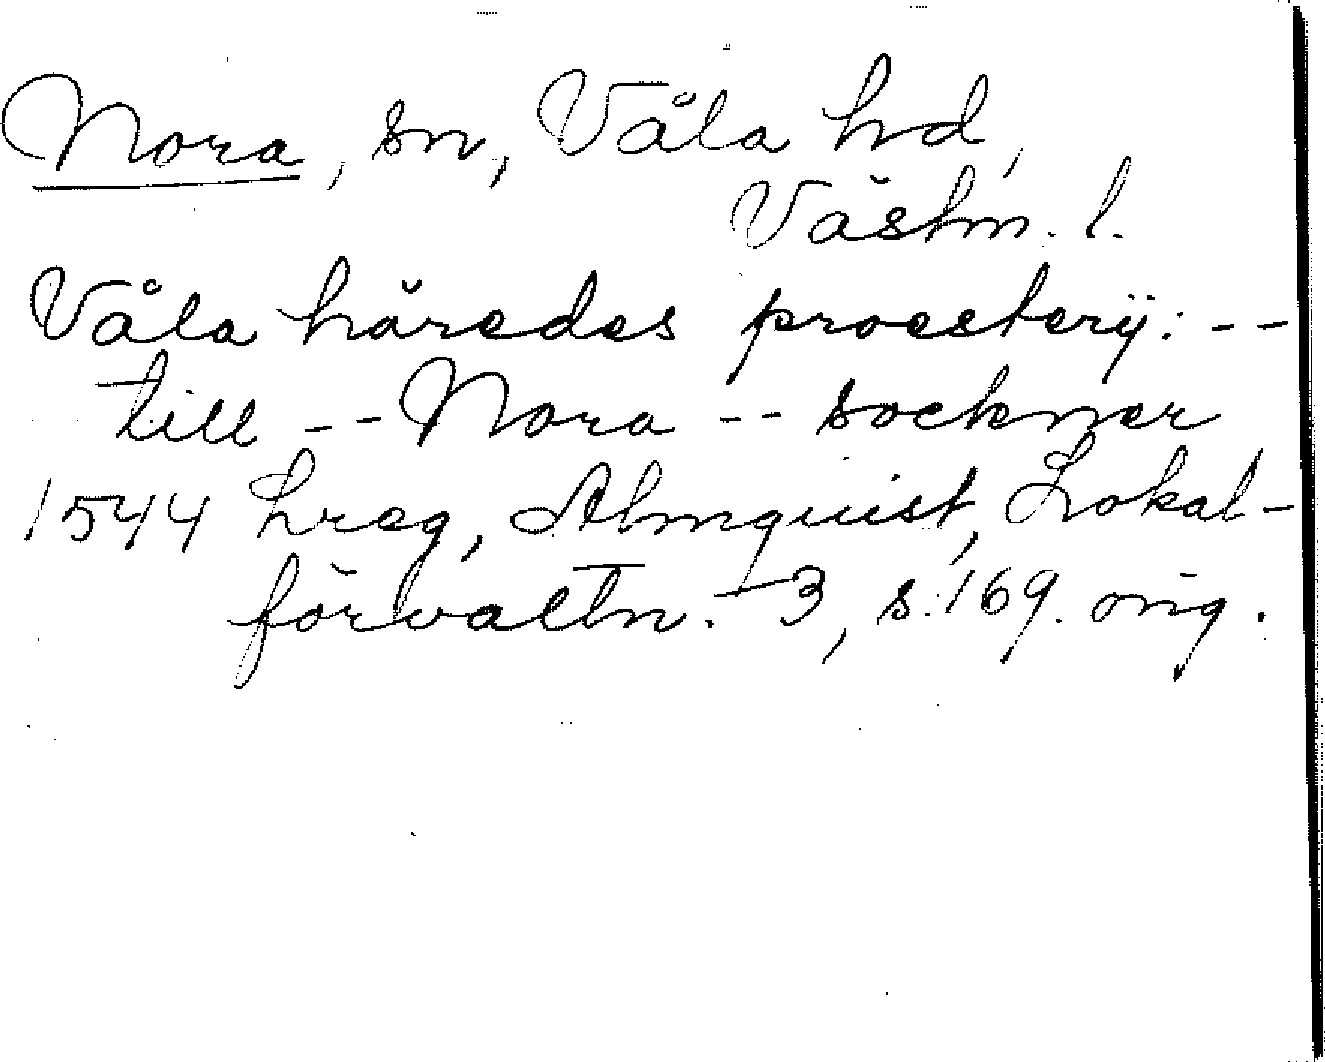 Nora, sn, Våla hd,
Västm. l.
Våla häredes proesterij: --
till -- Nora -- sockner
1544 hreg, Almquist, Lokal-
förvaltn. 3, s. 169. orig.